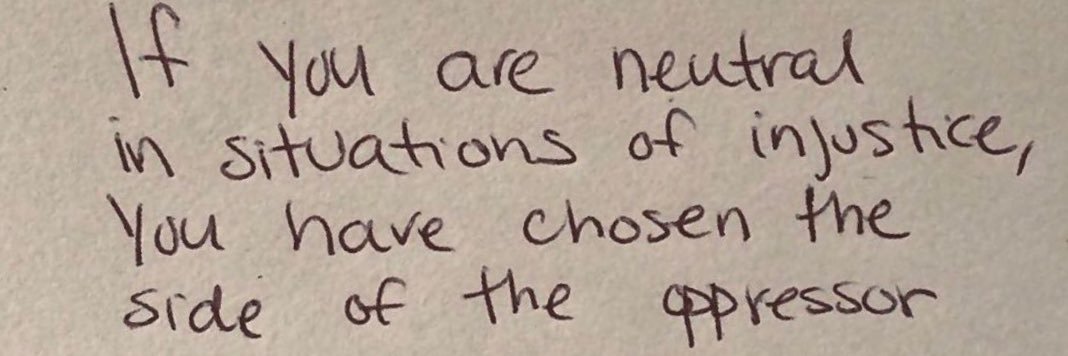 If you are neutral
in situations of injustice,
You have chosen the
side of the oppressor